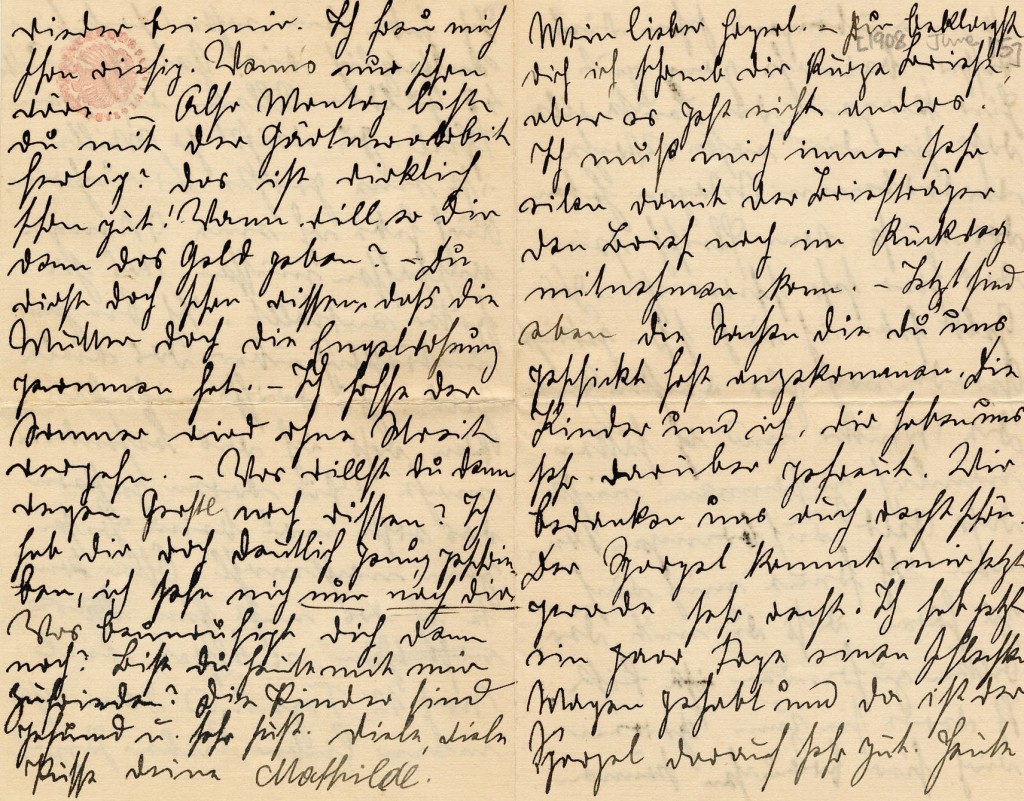 Mein lieber – Du beklagst
[1908 June
dich ich schreib dir kurze Briefe,
aber es geht nicht anders.
Ich muß mich immer sehr
eilen damit der Briefträger
den Brief noch im Rückweg
mitnehmen kann. – Jetzt sind
eben die Sachen die du uns
geschickt hast angekommen. Die
Kinder und ich, wir haben uns
sehr darüber gefreut. Wir
bedanken uns auch recht schön.
Der Spargel kommt mir jetzt
gerade sehr recht. Ich hab jetzt
ein paar Tage einen schlechten
Magen gehabt und da ist der
Spargel darauf sehr gut. Heute
wieder bei mir. Ich freu mich
schon riesig. Wenns nur schon
wäre. – Also Montag bist
du mit der Gärtnerarbeit
fertig? Das ist wirklich
schon gut! Wann will er dir
denn das Geld geben? – Du
wirst doch schon wissen, dass die
Mutter doch die Engelwohnung
genommen hat. – Ich hoffe der
Sommer wird ohne Streit
vergehn. – Was willst du denn
wegen Gerstl noch wissen? Ich
hab dir doch deutlich genug geschrie-
ben, ich sehn mich nur nach dir.
Was beunruhigt dich denn
noch? Bist du heute mit mir
zufrieden? Die Kinder sind
gesund u. sehr süß. Viele, viele
Küsse deine Mathilde.